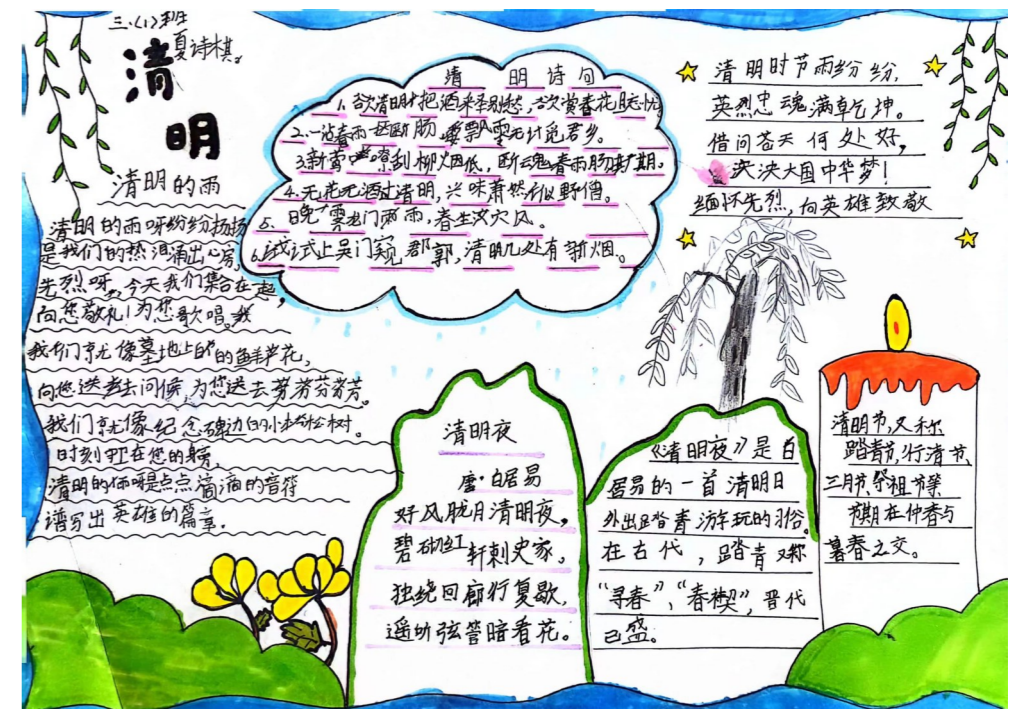 三.(1)班
夏诗棋。
清
明
清明的雨
清明的雨呀纷纷扬扬
是我们的热泪涌出心房,
先烈呀,今天我们集合在起,
向您敬礼!为您歌唱。我
我们就像墓地上的的鲜芦花,
向您送去问候,为您送去芬芬芬芬芳。
我们就像纪念碑边的小松树。
时刻在您的身旁,
清明的雨呀是点点滴滴的音符
谱写出英雄的篇章.
清明诗句
1.欲清明才把酒来泽别愁,欲赏春花
2.一 春雨 断肠, 飘零无计觅君乡。
3.新莺嘹嘹刮柳烟低,断魂春雨肠 期。
4.无花无酒过清明,兴味萧然似野僧。
5.晚霁龙门雨,春生汝穴风。
6.试上吴门窥郡郭,清明几处有新烟。
清明时节雨纷纷,
英烈忠魂满乾坤。
借问苍天何处好,
泱泱大国中华梦!
缅怀先烈,向英雄致敬
清明夜
唐·白居易
好风胧月清明夜,
碧砌红轩刺史家。
独绕回廊行复歇,
遥听弦管暗看花。
《清明夜》是白
居易的一首清明日
外出踏青游玩的习俗。
在古代,踏青又称
“寻春”,“春禊”,晋代
已盛。
清明节,又称
踏青节,行清节,
三月节祭祖节等
节期在仲春与
暮春之交。